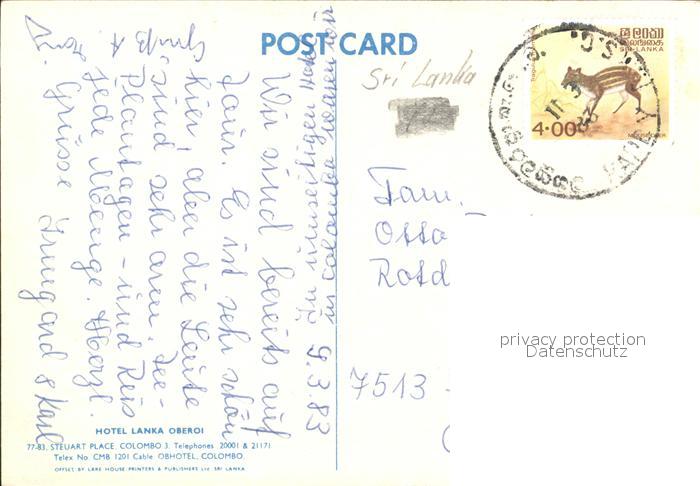 POST CARD
Sri Lanka
ශ්‍රී ලංකා
இலங்கை
SRI LANKA
4.00
MOUSE DEER
9.3.83
In unserem Hotel
in Colombo waren wir
Wir sind bereits auf
Tour. Es ist sehr schön
hier, aber die Leute
sind sehr arm. Tee-
Plantagen - und Reis
jede Menge. Herzl.
Grüsse Irmgard & Karl
Fam.
Otto
Rotd
7513
privacy protection
Datenschutz
HOTEL LANKA OBEROI
77-83, STEUART PLACE, COLOMBO 3. Telephones 20001 & 21171
Telex No CMB 1201 Cable OBHOTEL, COLOMBO.
OFFSET BY LAKE HOUSE PRINTERS & PUBLISHERS Ltd. SRI LANKA